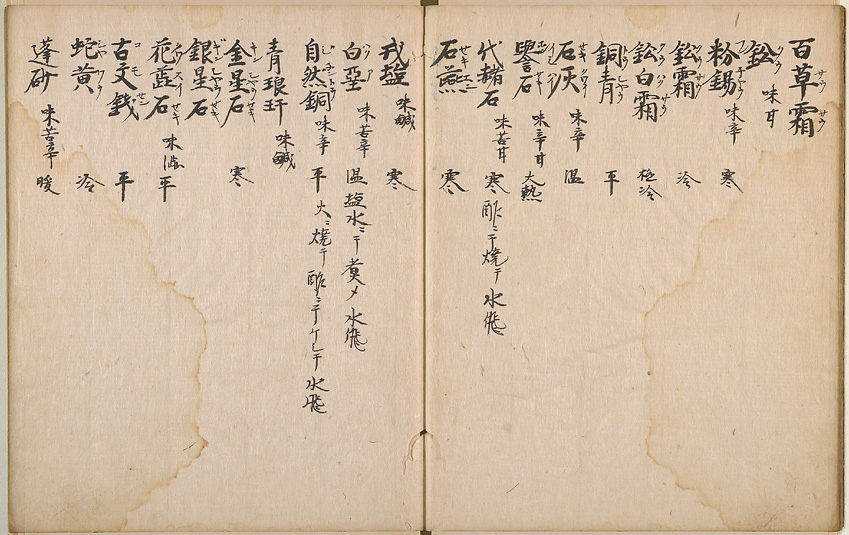 百草霜
鈆 味甘
粉錫 味辛 寒
鈆霜 冷
鈆白霜 極冷
銅青 平
石灰 味辛 温
礜石 味辛甘 大熱
代赭石 味苦甘 寒 酢ニテ焼テ水飛
石燕 寒
戎塩 味鹹 寒
白堊 味苦辛 温 塩水ニテ煮メ水飛
自然銅 味辛 平 火ニ焼テ酢ニテケシテ水飛
青琅玕 味鹹
金星石 寒
銀星石
花蕋石 味澁 平
古文銭 平
蛇黄 冷
蓬砂 味苦辛 暖